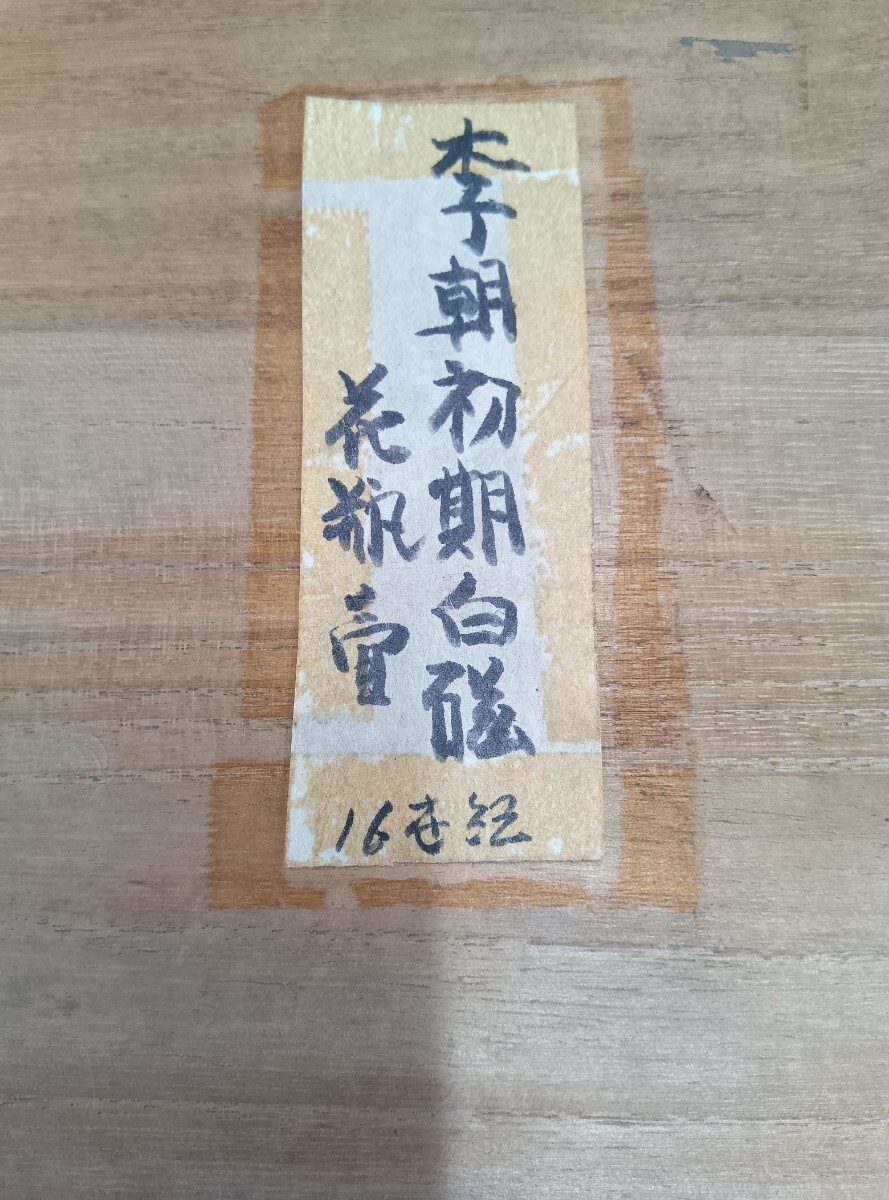 李朝初期白磁
花瓶壹
16世紀